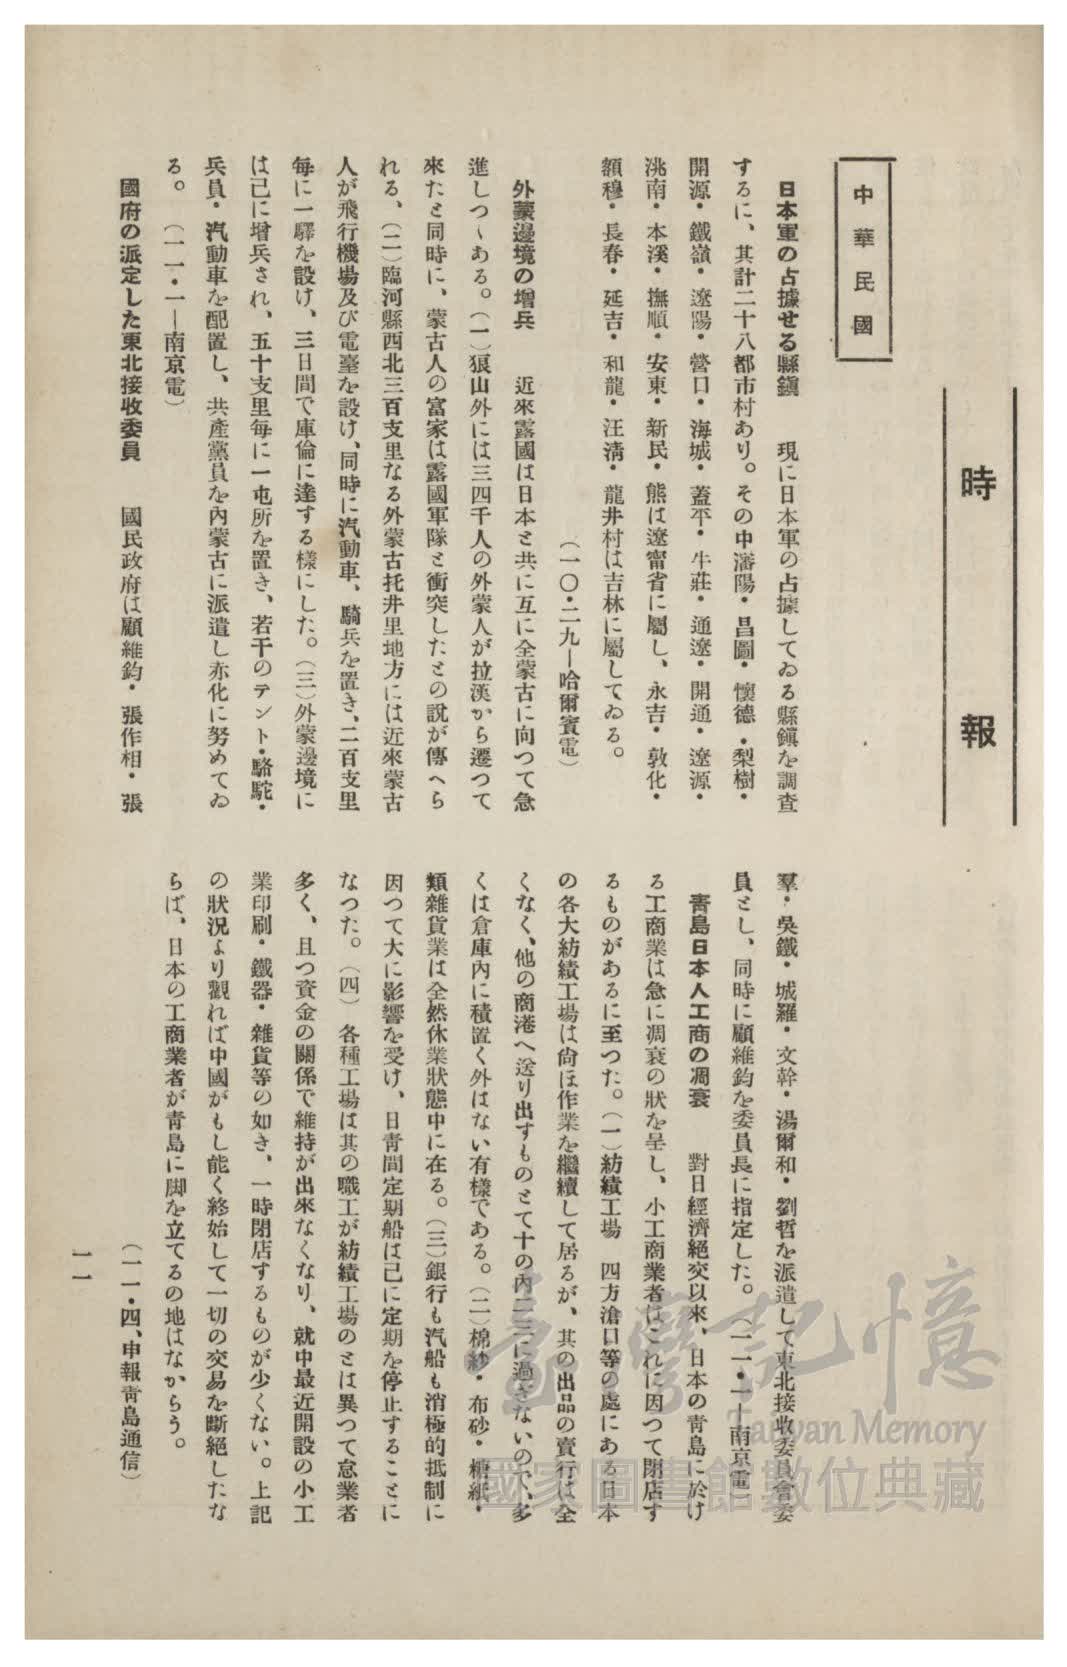 時報
中華民國
日本軍の占據せる縣鎭　現に日本軍の占據してゐる縣鎭を調査
するに、其計二十八都市村あり。その中瀋陽・昌圖・懷德・梨樹・
開源・鐵嶺・遼陽・營口・海城・蓋平・牛莊・通遼・開通・遼源・
洮南・本溪・撫順・安東・新民・熊は遼甯省に屬し、永吉・敦化・
額穆・長春・延吉・和龍・汪淸・龍井村は吉林に屬してゐる。
（一〇・二九―哈爾賓電）
外蒙邊境の增兵　近來露國は日本と共に互に全蒙古に向つて急
進しつゝある。（一）狼山外には三四千人の外蒙人が拉漢から遷つて
來たと同時に、蒙古人の富家は露國軍隊と衝突したとの說が傳へら
れる、（二）臨河縣西北三百支里なる外蒙古托井里地方には近來蒙古
人が飛行機場及び電臺を設け、同時に汽動車、騎兵を置き、二百支里
每に一驛を設け、三日間で庫倫に達する樣にした。（三）外蒙邊境に
は已に增兵され、五十支里每に一屯所を置き、若干のテント・駱駝・
兵員・汽動車を配置し、共產黨員を內蒙古に派遣し赤化に努めてゐ
る。（一一・一―南京電）
國府の派定した東北接收委員　國民政府は顧維鈞・張作相・張
羣・吳鐵・城羅・文幹・湯爾和・劉哲を派遣して東北接收委員會委
員とし、同時に顧維鈞を委員長に指定した。（一一・一―南京電）
靑島日本人工商の凋衰　對日經濟絕交以來、日本の靑島に於け
る工商業は急に凋衰の狀を呈し、小工商業者はこれに因つて閉店す
るものがあるに至つた。（一）紡績工場　四方滄口等の處にある日本
の各大紡績工場は尙ほ作業を繼續して居るが、其の出品の賣行は全
くなく、他の商港へ送り出すものとて十の內二三に過ぎないので、多
くは倉庫內に積置く外はない有樣である。（二）棉紗・布砂・糖紙・
類雜貨業は全然休業狀態中に在る。（三）銀行も汽船も消極的抵制に
因つて大に影響を受け、日靑間定期船は已に定期を停止することに
なつた。（四）各種工場は其の職工が紡績工場のとは異つて怠業者
多く、且つ資金の關係で維持が出來なくなり、就中最近開設の小工
業印刷・鐵器・雜貨等の如き、一時閉店するものが少くない。上記
の狀況より觀れば中國がもし能く終始して一切の交易を斷絕したな
らば、日本の工商業者が靑島に脚を立てるの地はなからう。
（一一・四、申報靑島通信）
一一
臺灣記憶
Taiwan Memory
國家圖書館數位典藏